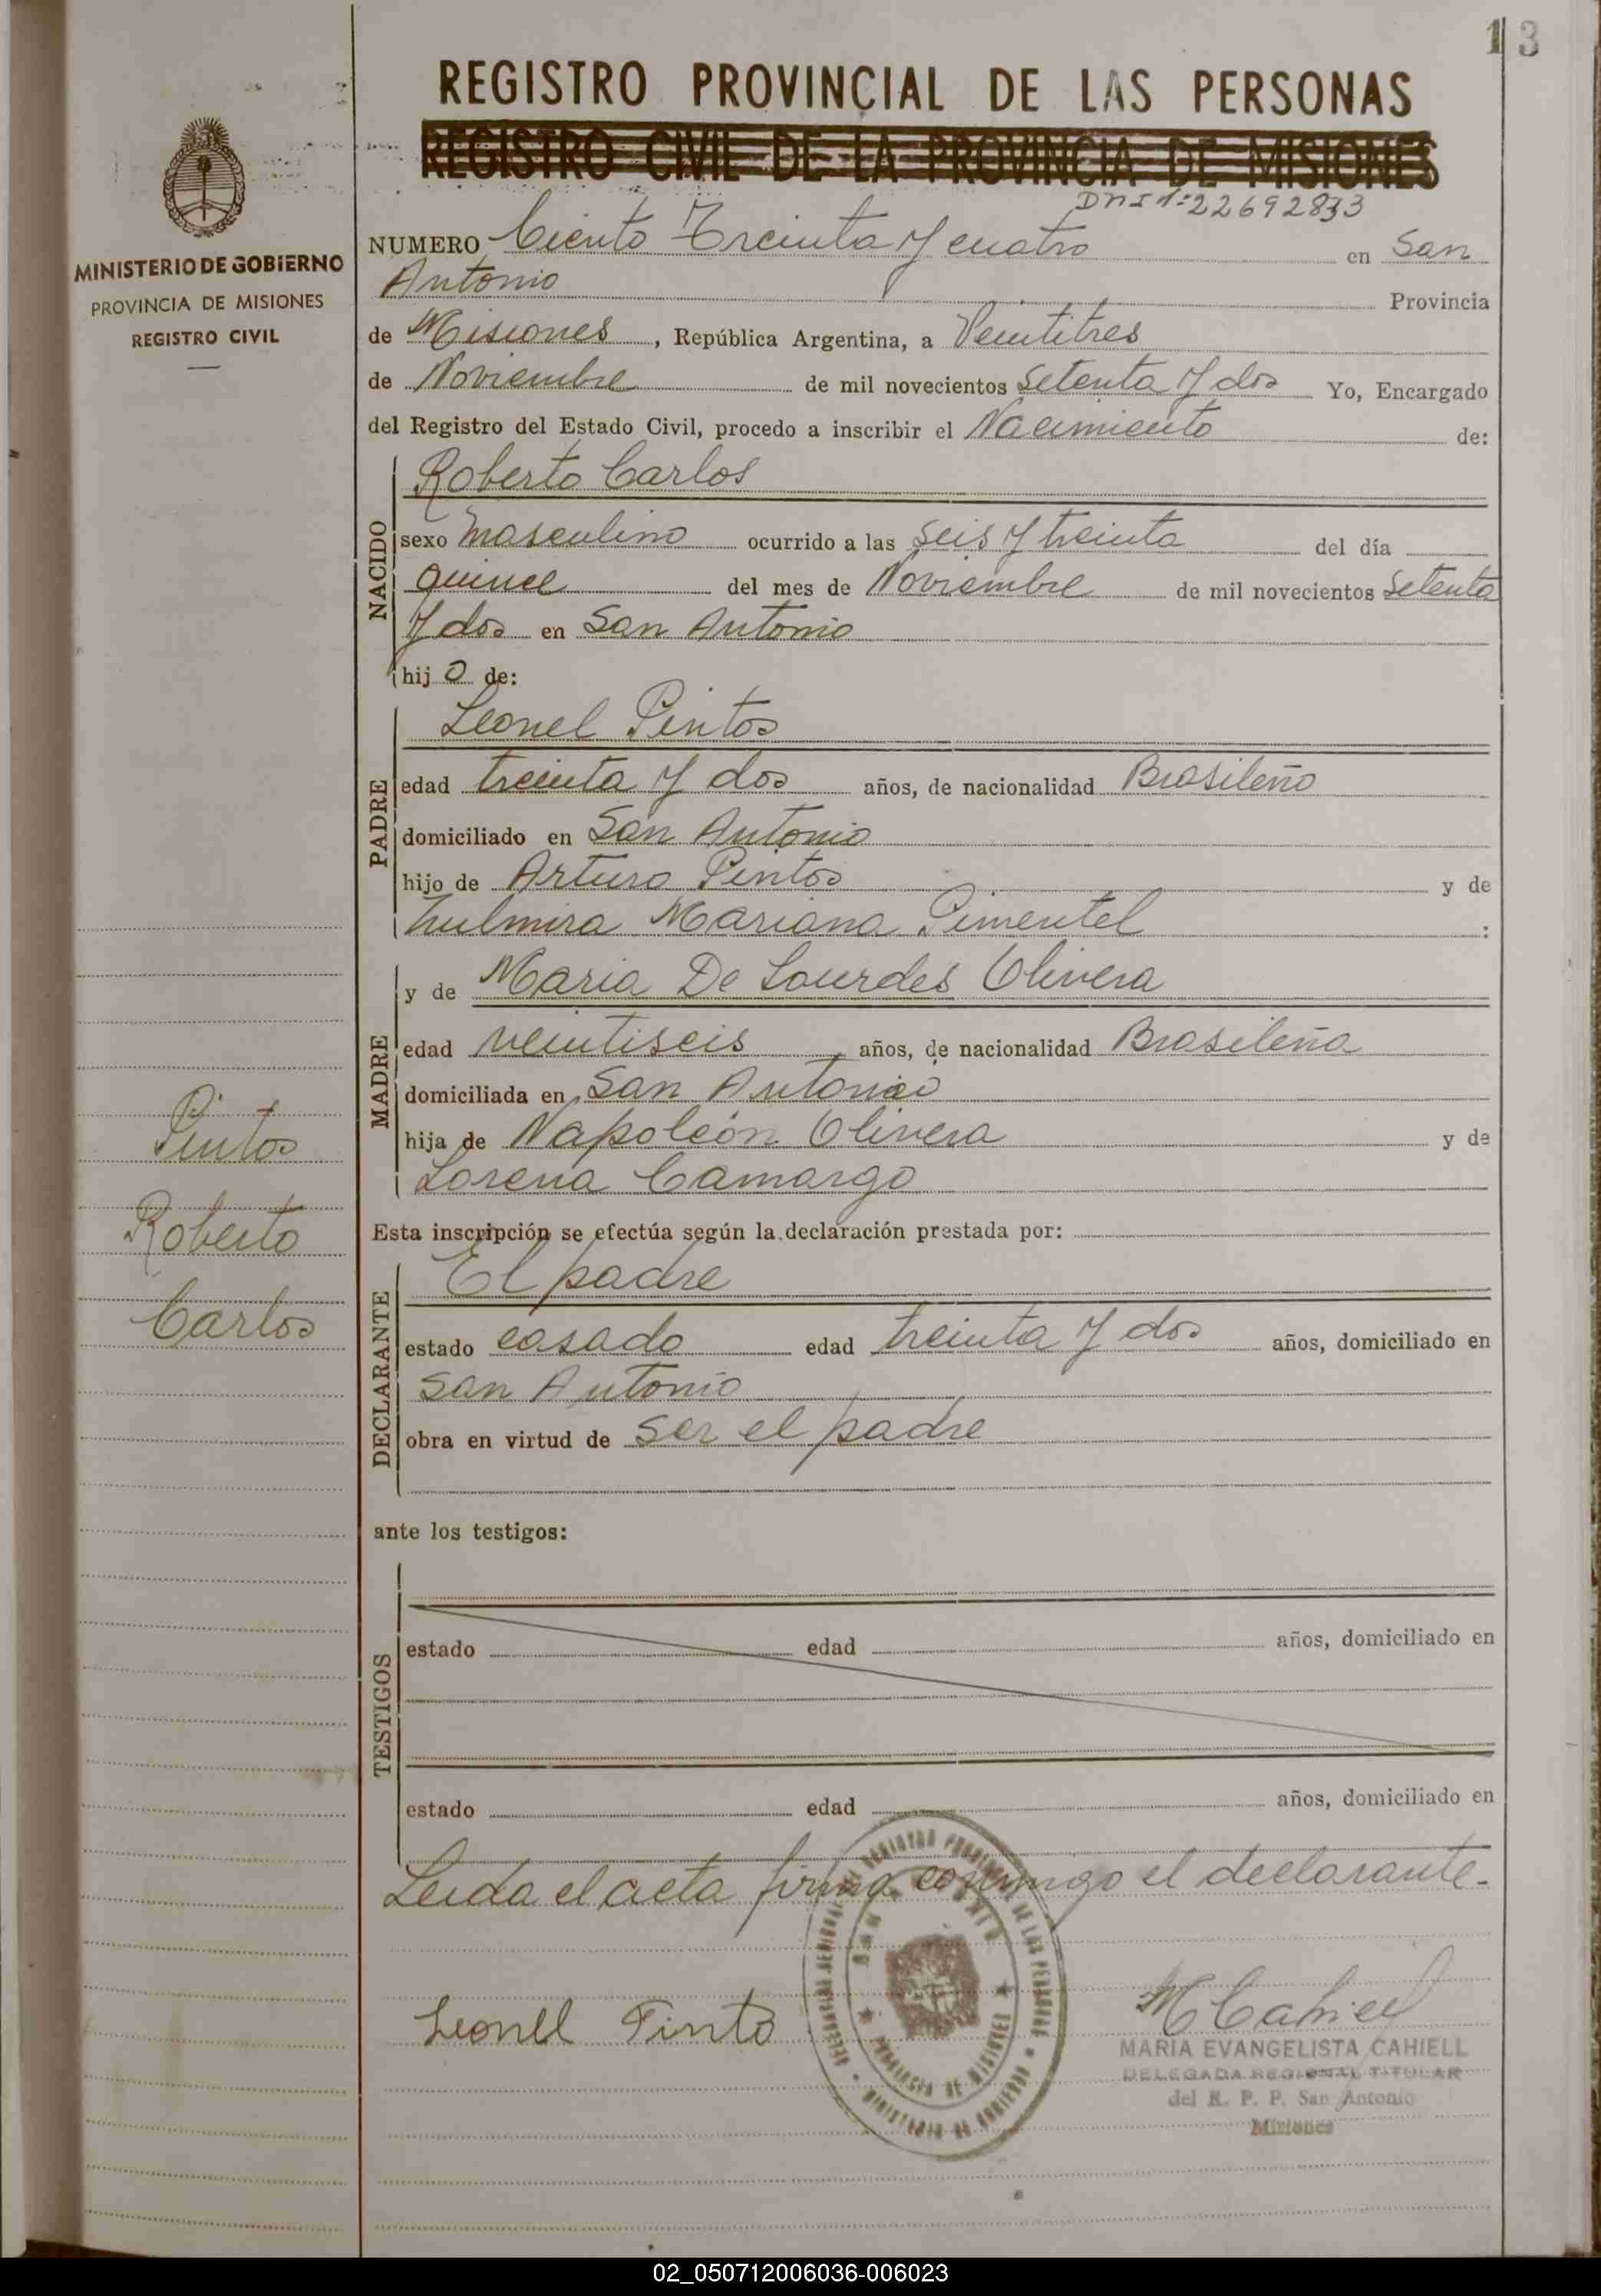 13
REGISTRO PROVINCIAL DE LAS PERSONAS
REGISTRO CIVIL DE LA PROVINCIA DE MISIONES
MINISTERIO DE GOBIERNO
PROVINCIA DE MISIONES
REGISTRO CIVIL
DNI Nº 22692833
NUMERO Ciento Treinta y cuatro en San
Antonio Provincia
de Misiones, República Argentina, a Veintitres
de Noviembre de mil novecientos Setenta y dos Yo, Encargado
del Registro del Estado Civil, procedo a inscribir el Nacimiento de:
NACIDO
Roberto Carlos
sexo masculino ocurrido a las seis y treinta del día
quince del mes de Noviembre de mil novecientos Setenta
y dos en San Antonio
hijo de:
PADRE
Leonel Pintos
edad treinta y dos años, de nacionalidad Brasileño
domiciliado en San Antonio
hijo de Arturo Pintos y de
Mariana Pimentel :
MADRE
y de Maria De Lourdes Olivera
edad veintiseis años, de nacionalidad Brasileña
domiciliada en San Antonio
hija de Napoleón Olivera y de
Lorena Camargo
Pintos
Roberto
Carlos
Esta inscripción se efectúa según la declaración prestada por:
DECLARANTE
El padre
estado casado edad treinta y dos años, domiciliado en
San Antonio
obra en virtud de ser el padre
ante los testigos:
TESTIGOS
estado edad años, domiciliado en
estado edad años, domiciliado en
Leida el acta firma conmigo el declarante.
Leonel Pinto
M Cahiell
MARIA EVANGELISTA CAHIELL
DELEGADA REGIONAL TITULAR
del R. P. P. San Antonio
Misiones
PROVINCIA DE MISIONES
MINISTERIO DE GOBIERNO
02_050712006036-006023